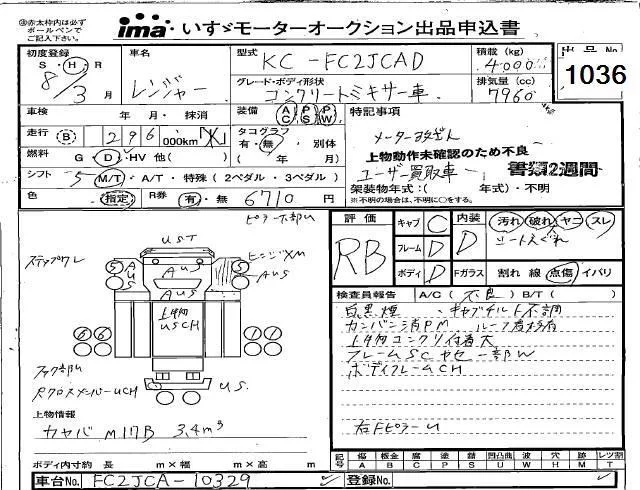 ㊟赤太枠内は必ず
ボールペンで
ご記入下さい。
ima いすゞモーターオークション出品申込書
初度登録
S・H・R
8/3月
車名
レンジャー
型式
KC-FC2JCAD
グレード・ボディ形状
コンクリートミキサー車
積載(kg)
4000
排気量(cc)
7960
出品No
1036
車検 年 月・抹消
装備 AC PS PW
特記事項
走行 B 296 000km
タコグラフ
有・無・別体
( 年 月)
メーター改ざん
上物動作未確認のため不良
ユーザー買取車
書類2週間
燃料 G D・HV 他( )
架装物年式:( 年式)・不明
※不明の場合は、不明に○をする。
シフト 5 M/T・A/T・特殊(2ペダル・3ペダル)
色 指定 R券 有・無 6710 円
ピラー下部U
評価
RB
キャブ C
フレーム D
ボディ D
内装 D
Fガラス
汚れ 破れ ヤニ スレ
シートえぐれ
割れ 線 点傷 イバリ
ステップクレ
UST
AUS
ヒンジXM
AUS
上物内
USCH
US.
リヤクロスメンバーUCH
検査員報告 A/C(不良)B/T( )
白黒煙・キャブチルト不調
カンバン消PM
上物内コンクリ付着大
フレームSCヤセ一部W
ボディフレームCH
右FピラーU
上物情報
カヤバ M17B 3.4m³
ボディ内寸約 長 m×幅 m×高 m
記号
傷 A
板金 B
腐 C
塗 P
錆 S
凹凸曲 U
波 W
穴 H
跡 M
レツ割 T
車台No. FC2JCA-10329
登録No.